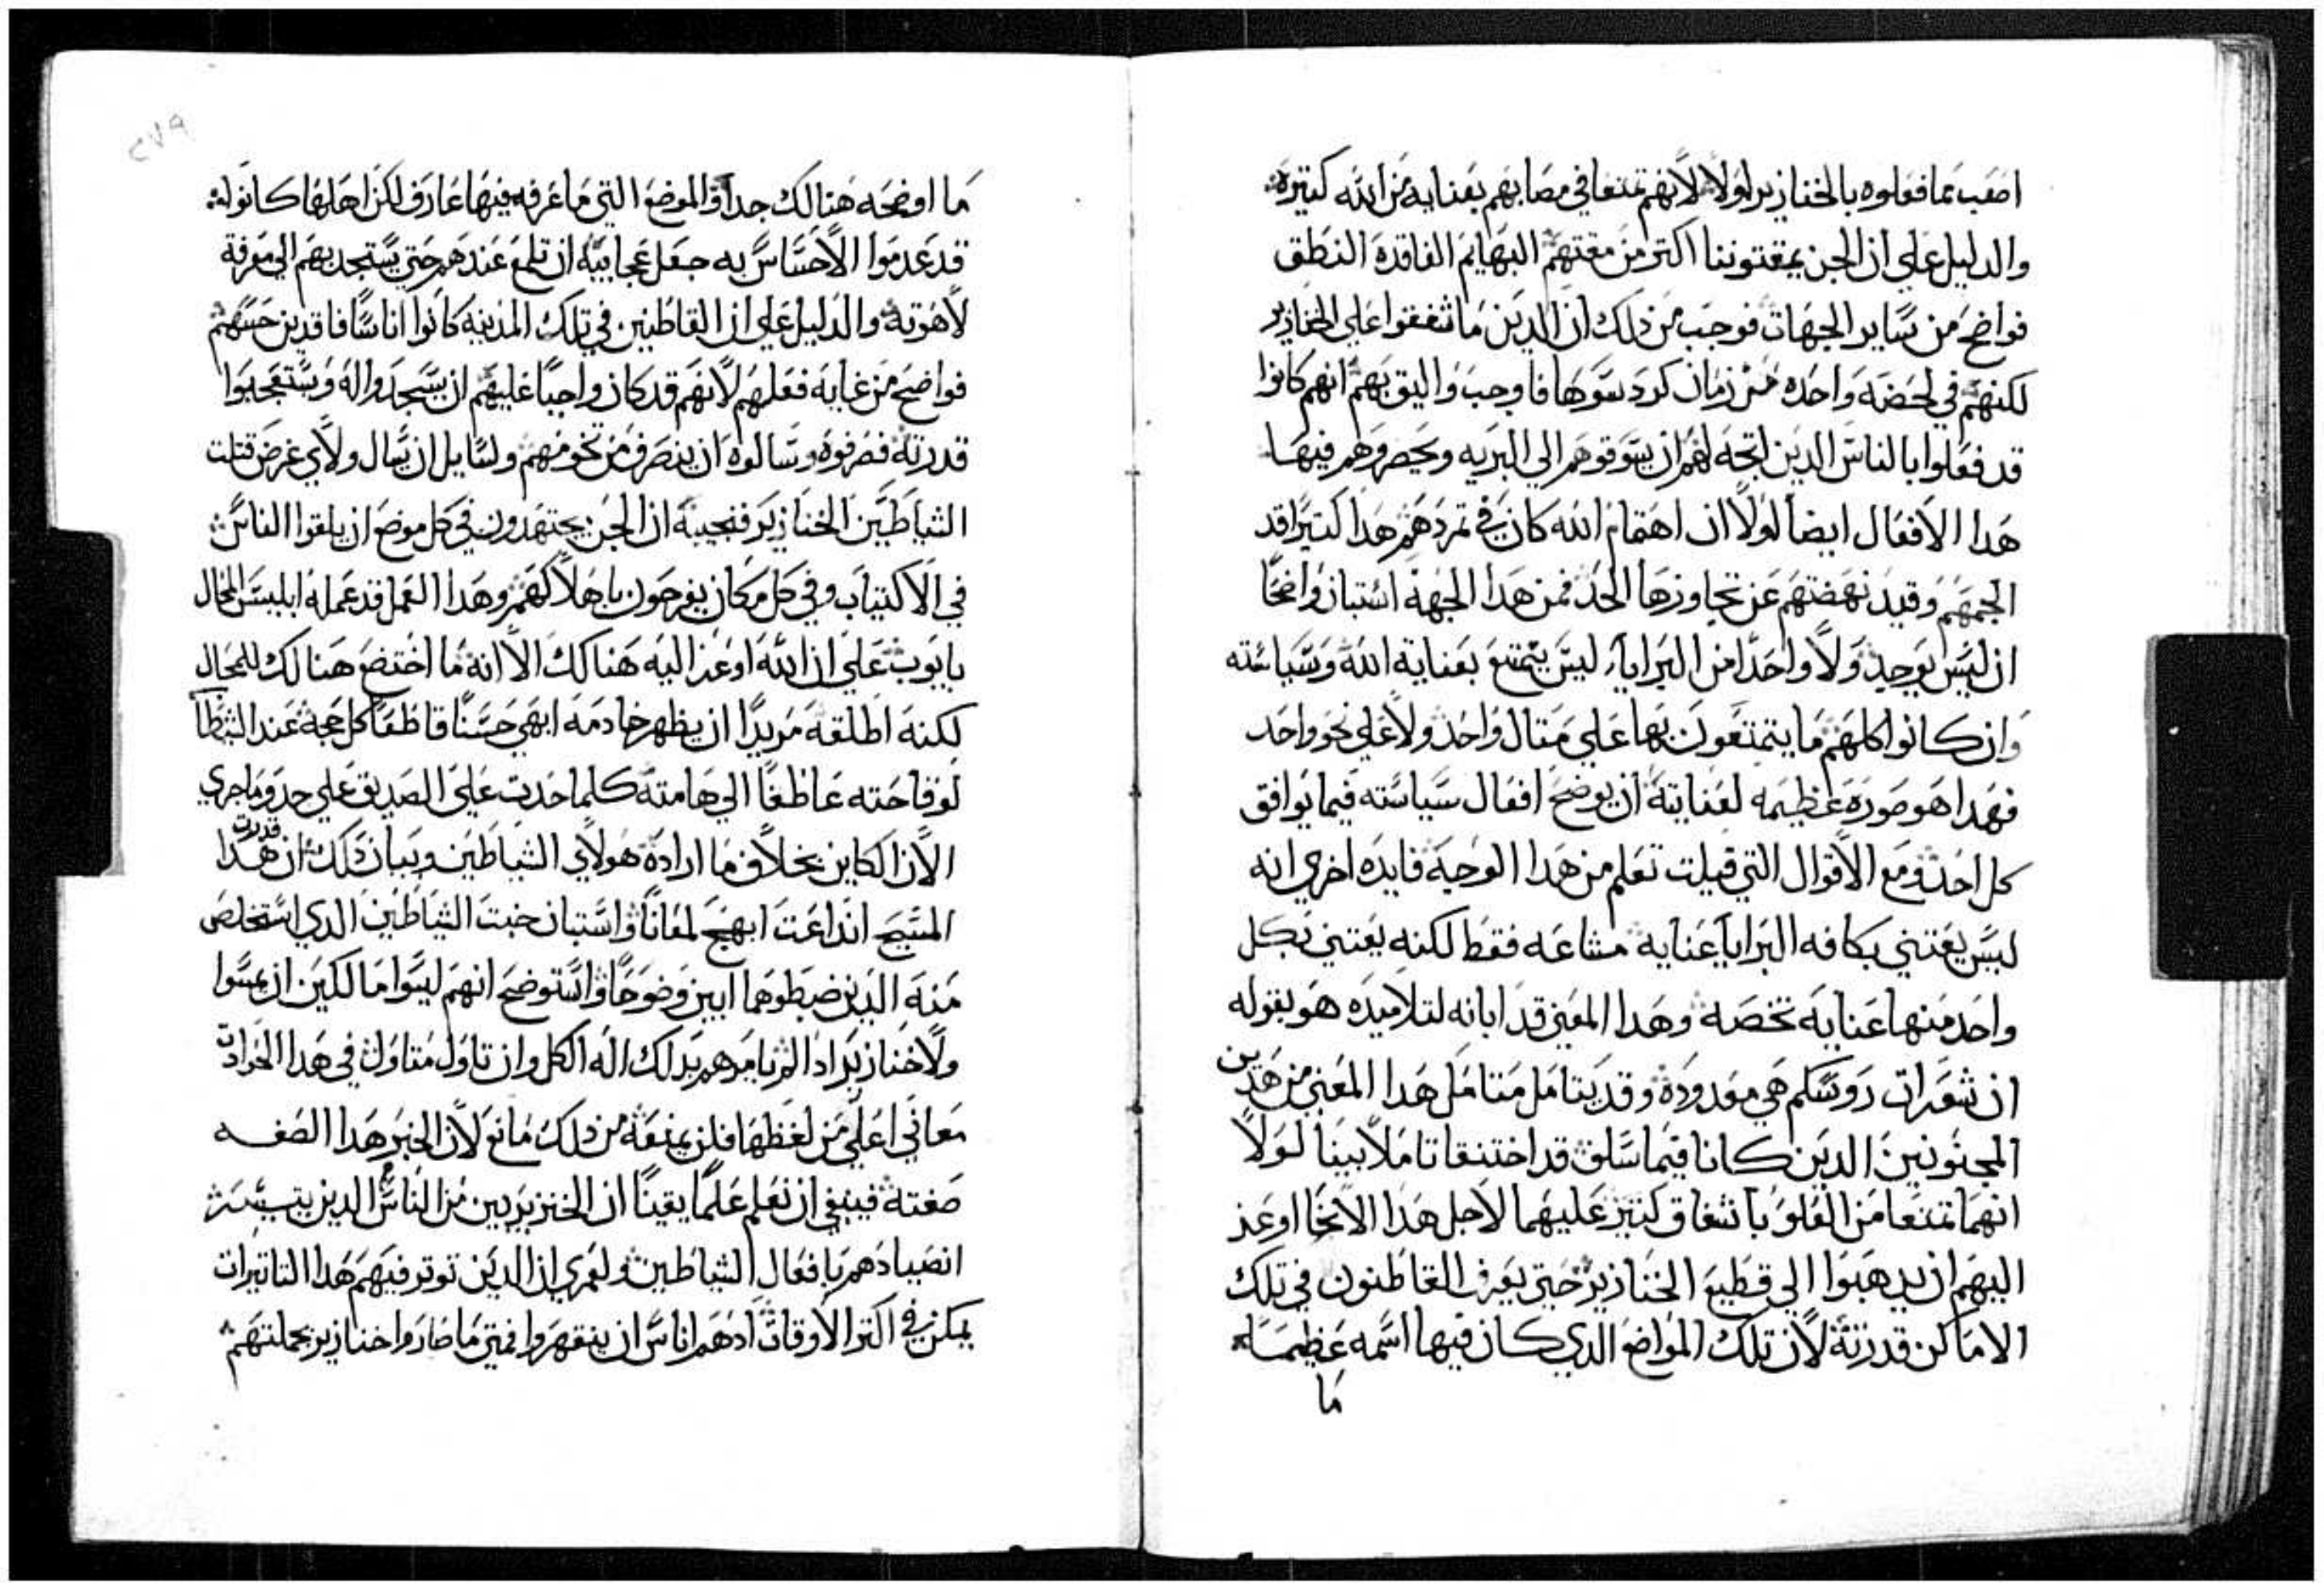 اصعب مما فعلوه بالخنازير لولا لانهم تمتعا في مصابهم بعنايه من الله كتيرة
والدليل علي ان الجن يمقتوننا اكتر من مقتهم البهايم الفاقدة النطق
فواضح من ساير الجهات فوجب من ذلك ان الدين ما شفقوا علي الخنازير
لكنهم في لحضه واحده من زمان كردسوها فاوجب واليق بهم انهم كانوا
قد فعلوا بالناس الدين اتجه لهم ان يسوقوهم الي البريه ويحصروهم فيها
هدا الافعال ايضا لولا ان اهتمام الله كان في تمردهم هدا كتيرا قد
الجمهم وقيد نهضتهم عن تجاوزها الحد فمن هدا الجهة استبان واضحا
ان ليس يوجد ولا واحدا من البرايا ليس يتمتع بعناية الله وسياسته
وان كانوا كلهم ما يتمتعون بها علي متال واحد ولا علي نحو واحد
فهدا هو صورة عظيمه لعنايته ان يوضح افعال سياسته فيما يوافق
كل احد ومع الاقوال التي قيلت تعلم من هدا الوجيه فايده اخري انه
ليس يعتني بكافه البرايا عنايه مشاعه فقط لكنه يعتني بكل
واحد منها عنايه تخصه وهدا المعني قد ابانه لتلاميده هو بقوله
ان شعرات روسكم هي معدودة وقد يتامل متامل هدا المعني من هدين
المجنونين الدين كانا فيما سلف قد اختنقا تاملا بينا لولا
انهما تمتعا من العلو باشفاق كتير عليهما لاجل هدا الانحا اوعز
اليهم ان يدهبوا الي قطيع الخنازير حتي يعرف القاطنون في تلك
الاماكن قدرته لان تلك المواضع الدي كان فيها اسمه عظيما
ما
٢٧٩
ما اوضحه هنالك جدا والموضع التي ما عرفه فيها عارف لكن اهلها كانوا
قد عدموا الاحساس به جعل عجايبه ان تلمع عندهم حتي يستجدبهم الي معرفة
لاهوته والدليل علي ان القاطنين في تلك المدينه كانوا اناسا فاقدين حسهم
فواضح من غايه فعلهم لانهم قد كان واجبا عليهم ان يسجدوا له ويستعجبوا
قدرته فصرفوه وسالوه ان ينصرف من تخومهم ولسايل ان يسال ولاي غرض قتلت
الشياطين الخنازير فنجيبه ان الجن يجتهدون في كل موضع ان يلقوا الناس
في الاكتياب وفي كل مكان يفرحون باهلاكهم وهدا العمل قد عمله ابليس المحال
بايوب علي ان الله اوعز اليه هنالك الا انه ما اختضع هنالك للمحال
لكنه اطلقه مريدا ان يظهر خادمه ابهي حسنا قاطعا كل حجة عند الشطا
لوقاحته عاطفا الي هامته كلما حدت علي الصديق علي حدو ما جري
الان الكاين بخلاف ما اراده هولاي الشياطين وبيان دلك ان قدرت هدا
المسيح انداعت ابهج لمعانا واستبان خبت الشياطين الدي استخلص
منه الدين ضبطوهما ابين وضوحا واستوضح انهم ليسوا مالكين ان يمسوا
ولا خنازير ادا لم يامرهم بدالك اله الكل وان تاول متاول في هدا الحوادت
معاني اعلي من لفظها فلن يمنعه من دلك مانع لان الخبر هدا الصفه
صفته فينبغي ان نعلم علما يقينا ان الخنزيريين من الناس الدين يتيسر
انصيادهم بافعال الشياطين ولعمري ان الدين توتر فيهم هدا التاتيرات
يمكن في اكتر الاوقات ادهم اناس ان ينقهروا فمتي ما صاروا خنازير بجملتهم